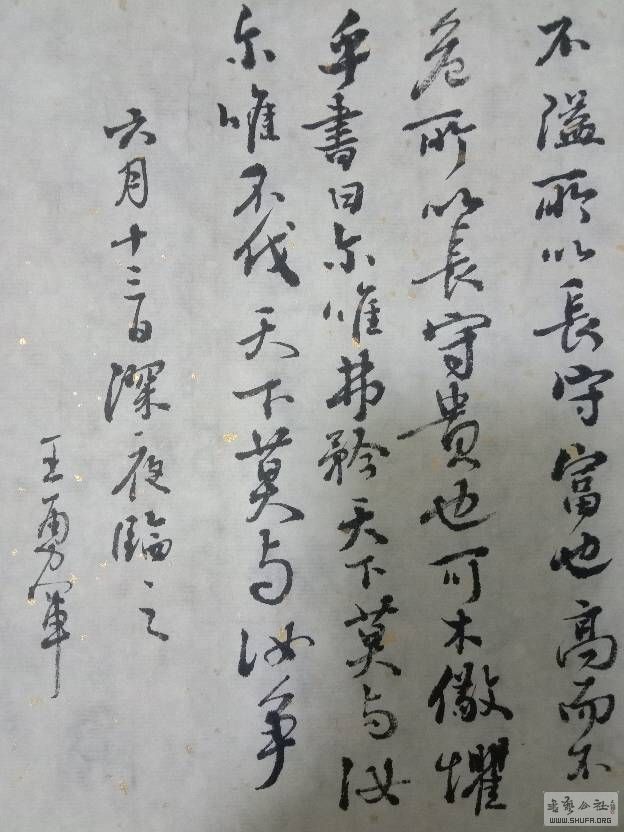 不溢所以長守富也高而不
危所以長守貴也可木儆懼
乎書曰尔唯弗矜天下莫与汝
尔唯不伐天下莫与汝争
六月十三日深夜臨之
王勇軍
WWW.SHUFA.ORG